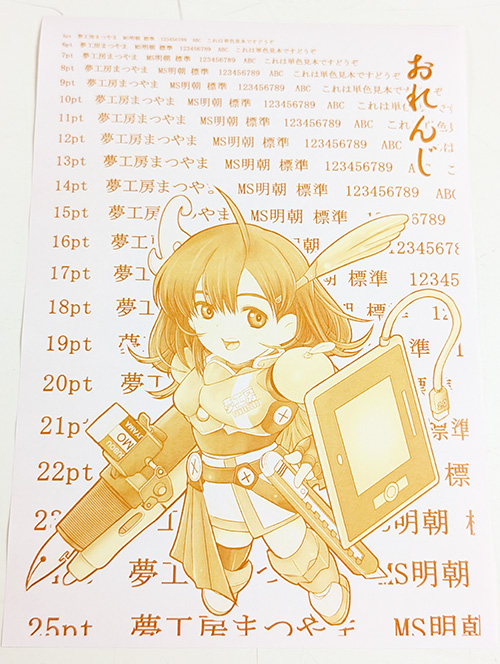 おれんじ
5pt 夢工房まつやま MS明朝 標準 123456789 ABC これは単色見本ですどうぞ
6pt 夢工房まつやま MS明朝 標準 123456789 ABC これは単色見本ですどうぞ
7pt 夢工房まつやま MS明朝 標準 123456789 ABC これは単色見本ですどうぞ
8pt 夢工房まつやま MS明朝 標準 123456789 ABC これは単色見本ですどうぞ
9pt 夢工房まつやま MS明朝 標準 123456789 ABC これは単色見本
10pt 夢工房まつやま MS明朝 標準 123456789 ABC これは単色
11pt 夢工房まつやま MS明朝 標準 123456789 ABC これ
12pt 夢工房まつやま MS明朝 標準 123456789 ABC
13pt 夢工房まつやま MS明朝 標準 123456789
14pt 夢工房まつやま MS明朝 標準 123456789 ABC
15pt 夢工房まつやま MS明朝 標準 123456789
16pt 夢工房 明朝 標準 123456
17pt 夢工 標準 12345
18pt 夢工 標準 123
19pt 夢 準
20pt 夢
21pt 標準
22pt 夢 標
MS明朝
夢工房 MS明朝
25pt 夢工房まつやま MS明
MO